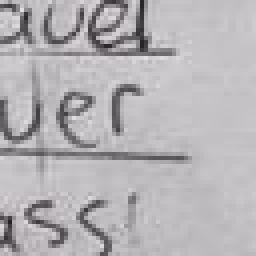 avel
ver
ass!